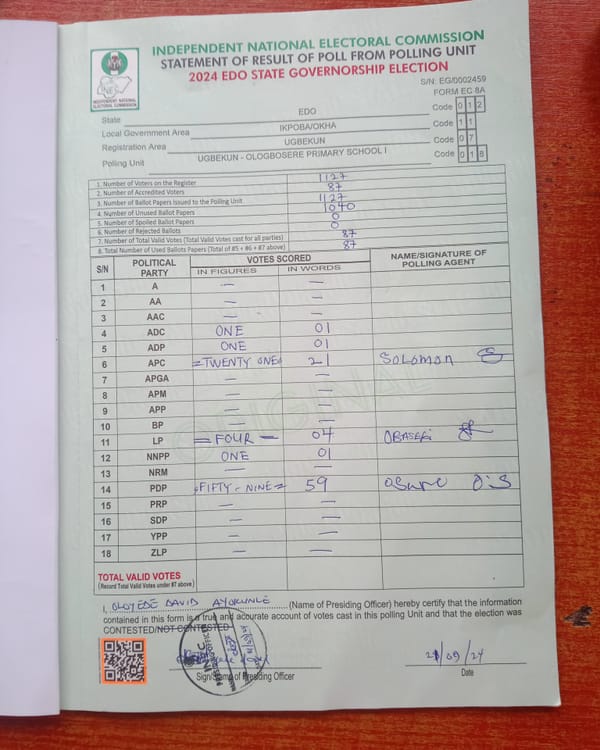 INDEPENDENT NATIONAL ELECTORAL COMMISSION
STATEMENT OF RESULT OF POLL FROM POLLING UNIT
2024 EDO STATE GOVERNORSHIP ELECTION
INEC
INDEPENDENT NATIONAL
ELECTORAL COMMISSION
S/N: EG/0002459
FORM EC 8A
State EDO Code 0 1 2
Local Government Area IKPOBA/OKHA Code 1 1
Registration Area UGBEKUN Code 0 7
Polling Unit UGBEKUN - OLOGBOSERE PRIMARY SCHOOL I Code 0 1 8
1. Number of Voters on the Register 1127
2. Number of Accredited Voters 87
3. Number of Ballot Papers Issued to the Polling Unit 1127
4. Number of Unused Ballot Papers 1040
5. Number of Spoiled Ballot Papers 0
6. Number of Rejected Ballots 0
7. Number of Total Valid Votes (Total Valid Votes cast for all parties) 87
8. Total Number of Used Ballots Papers (Total of #5 + #6 + #7 above) 87
S/N POLITICAL PARTY VOTES SCORED NAME/SIGNATURE OF POLLING AGENT
IN FIGURES IN WORDS
1 A — —
2 AA — —
3 AAC — —
4 ADC ONE 01
5 ADP ONE 01
6 APC =TWENTY ONE= 21 Solomon
7 APGA — —
8 APM — —
9 APP — —
10 BP — —
11 LP = FOUR — 04 OBASEKI
12 NNPP ONE 01
13 NRM — —
14 PDP =FIFTY-NINE= 59
15 PRP — —
16 SDP — —
17 YPP — —
18 ZLP — —
ORIGINAL
TOTAL VALID VOTES
(Record Total Valid Votes under #7 above)
I, OLOYEDE DAVID AYOKUNLE (Name of Presiding Officer) hereby certify that the information
contained in this form is a true and accurate account of votes cast in this polling Unit and that the election was
CONTESTED/NOT CONTESTED
21/09/24
Sign/Stamp of Presiding Officer Date